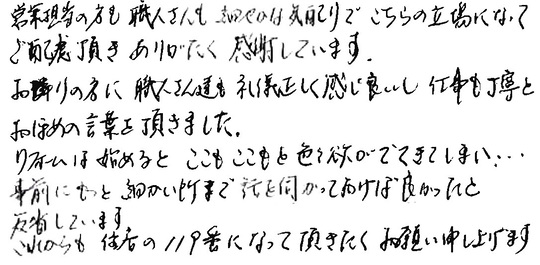 営業担当の方も 職人さんも 細やかな気配りで こちらの立場になって
ご配慮頂き ありがたく 感謝しています。
お隣りの方に 職人さん達も 礼儀正しく感じ良いし 仕事も丁寧と
おほめの言葉を頂きました。
リフォームは始めると ここもここもと色々欲がでてきてしまい…
事前にもっと細かい所まで 話を伺がっておけば良かったと
反省しています
これからも 住居の119番になって頂きたく お願い申し上げます